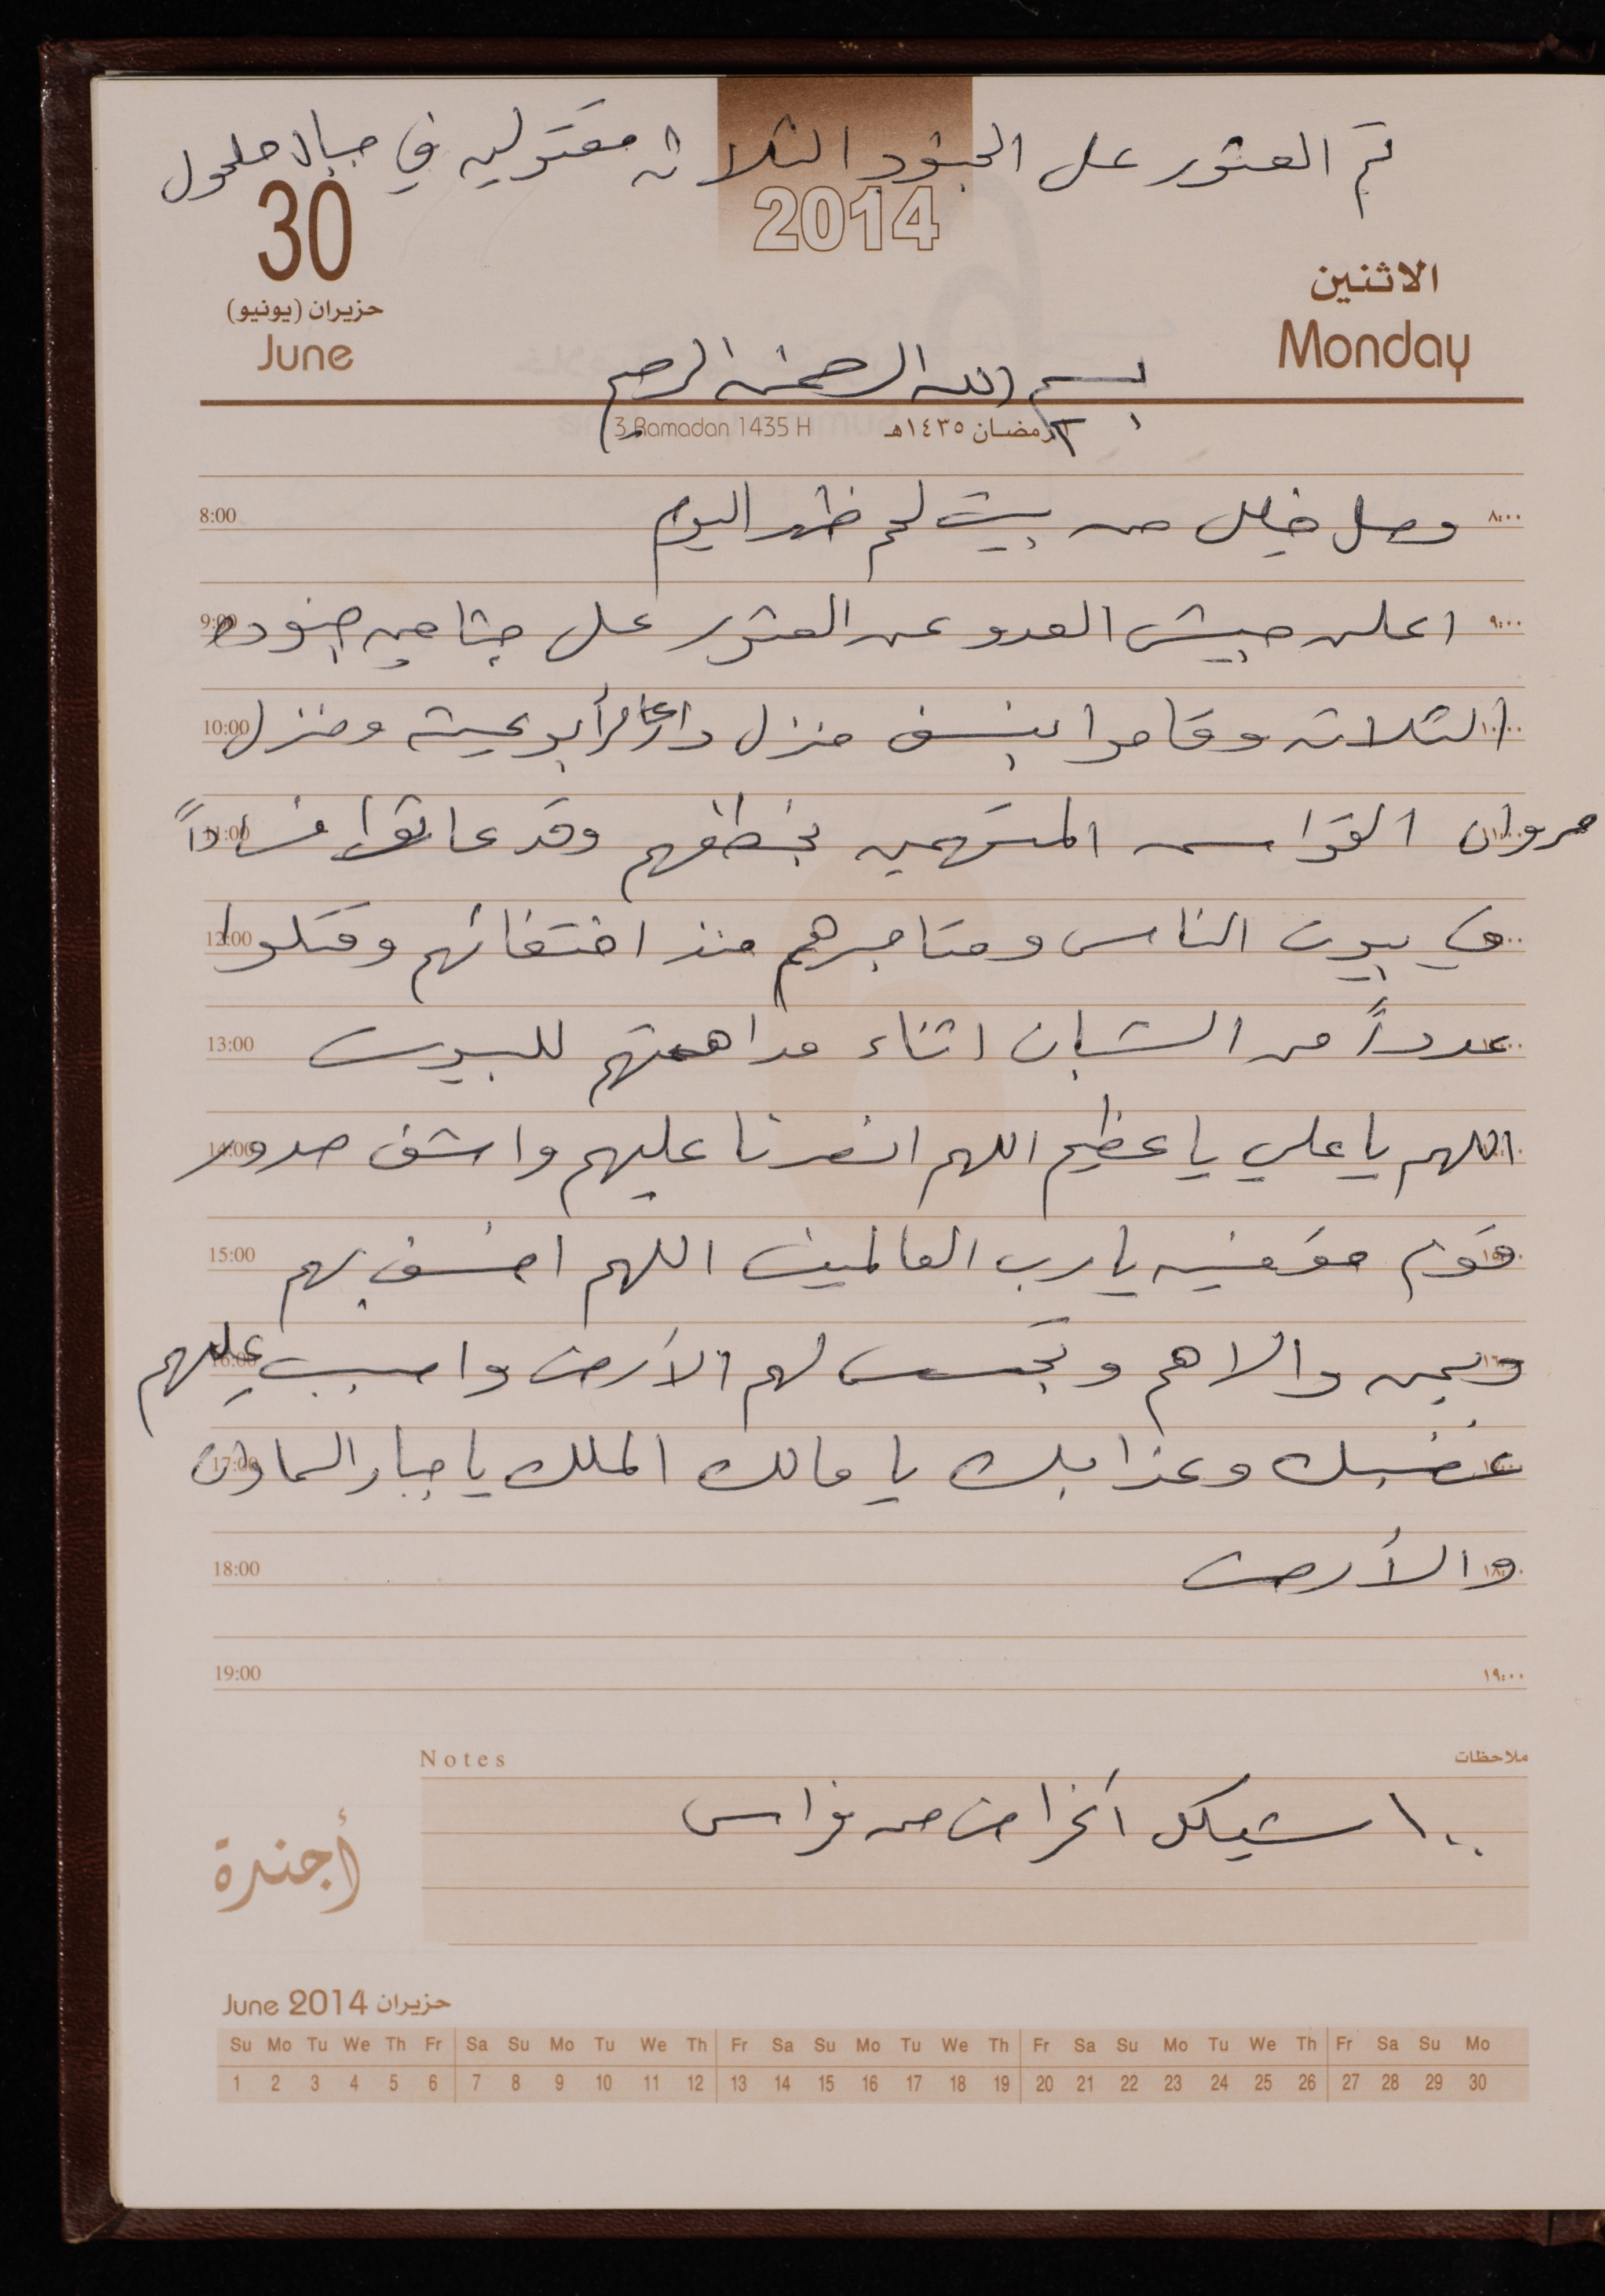 تم العثور على الجنود الثلاثة مقتولين في جبال حلحول
2014
30
حزيران (يونيو)
June
الاثنين
Monday
بسم الله الرحمن الرحيم
3 Ramadan 1435 H
٣ رمضان ١٤٣٥هـ
8:00 وصل خليل من بيت لحم ظهر اليوم ٨:٠٠
9:00 اعلن جيش العدو عن العثور على جثامين جنوده ٩:٠٠
10:00 الثلاثة وقاموا بنسف منزل دار عامر أبو عيشة ومنزل ١٠:٠٠
11:00 مروان القواسمه المتهمين بخطفهم وقد عاثوا فساداً
12:00 في بيوت الناس ومتاجرهم منذ اختفائهم وقتلوا
13:00 عدداً من الشبان اثناء مداهمتهم للبيوت
14:00 اللهم يا علي يا عظيم اللهم انصرنا عليهم واشف صدور
15:00 قوم مؤمنين يا رب العالمين اللهم اخسف بهم
16:00 وبمن والاهم وتجسس لهم الأرض واصبب عليهم
17:00 غضبك وعذابك يا مالك الملك يا جبار السماوات
18:00 والأرض ١٨:٠٠
19:00 ١٩:٠٠
Notes ملاحظات
١٠٠ شيكل من فراس
أجندة
June 2014 حزيران
Su Mo Tu We Th Fr Sa Su Mo Tu We Th Fr Sa Su Mo Tu We Th Fr Sa Su Mo Tu We Th Fr Sa Su Mo
1 2 3 4 5 6 7 8 9 10 11 12 13 14 15 16 17 18 19 20 21 22 23 24 25 26 27 28 29 30